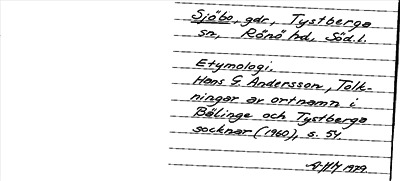 Sjöbo, gdr, Tystberga
sn, Rönö hd, Söd.l.
Etymologi.
Hans G. Andersson, Tolk-
ningar av ortnamn i
Bälinge och Tystberga
socknar (1960), s. 54.
AHM 1979.